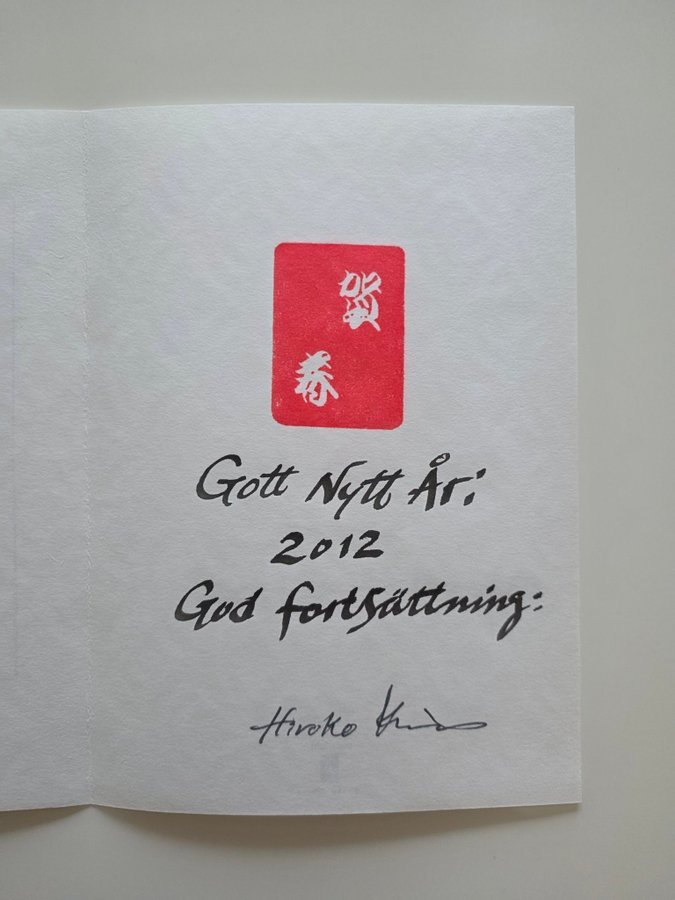 賀
春
Gott Nytt År:
2012
God fortsättning:
Hiroko